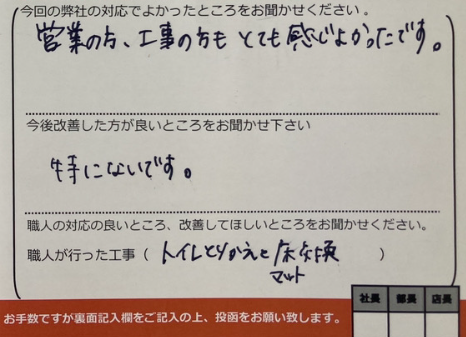 今回の弊社の対応でよかったところをお聞かせください。
営業の方、工事の方も とても感じよかったです。
今後改善した方が良いところをお聞かせ下さい
特にないです。
職人の対応の良いところ、改善してほしいところをお聞かせください。
職人が行った工事（ トイレとりかえと 床 ）
マット
お手数ですが裏面記入欄をご記入の上、投函をお願い致します。
社長 部長 店長